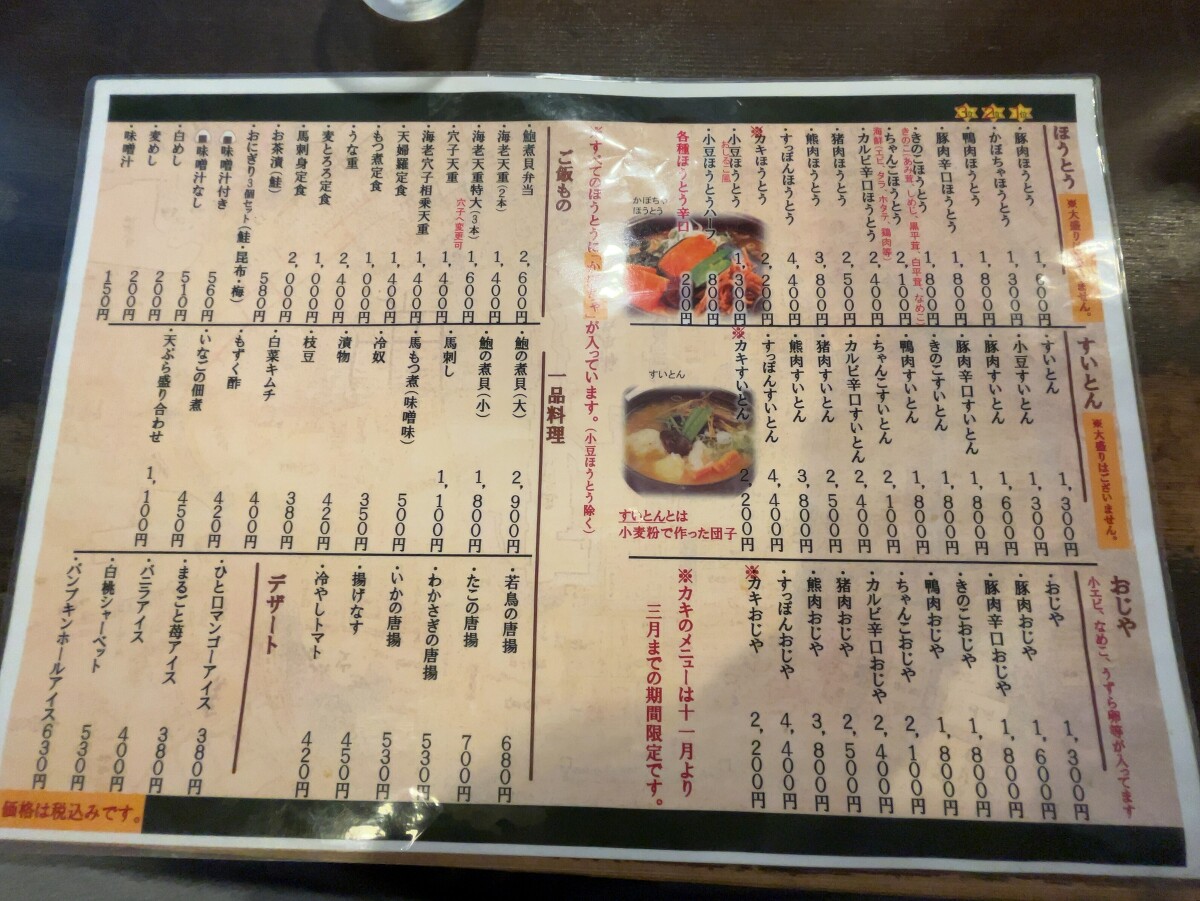 1位 2位 3位
ほうとう
・豚肉ほうとう 1,600円
・かぼちゃほうとう 1,300円
・鴨肉ほうとう 1,800円
・豚肉辛口ほうとう 1,800円
・きのこほうとう 1,800円
きのこ(あみ茸、しめじ、黒平茸、白平茸、なめこ)
・ちゃんこほうとう 2,100円
海鮮(エビ、タラ、ホタテ、鶏肉等)
・カルビ辛口ほうとう 2,400円
・猪肉ほうとう 2,500円
・熊肉ほうとう 3,800円
・すっぽんほうとう 4,400円
※・カキほうとう 2,200円
・小豆ほうとう 1,300円
おしるこ風
・小豆ほうとうハーフ 800円
各種ほうとう辛口 200円
かぼちゃ
ほうとう
すいとん
※大盛りはございません。
・すいとん 1,300円
・小豆すいとん 1,300円
・豚肉すいとん 1,600円
・豚肉辛口すいとん 1,800円
・きのこすいとん 1,800円
・鴨肉すいとん 1,800円
・ちゃんこすいとん 2,100円
・カルビ辛口すいとん 2,400円
・猪肉すいとん 2,500円
・熊肉すいとん 3,800円
・すっぽんすいとん 4,400円
※・カキすいとん 2,200円
すいとん
すいとんとは
小麦粉で作った団子
おじや
小エビ、なめこ、うずら卵等が入ってます
・おじや 1,300円
・豚肉おじや 1,600円
・豚肉辛口おじや 1,800円
・きのこおじや 1,800円
・鴨肉おじや 1,800円
・ちゃんこおじや 2,100円
・カルビ辛口おじや 2,400円
・猪肉おじや 2,500円
・熊肉おじや 3,800円
・すっぽんおじや 4,400円
※・カキおじや 2,200円
※カキのメニューは十一月より
三月までの期間限定です。
※すべてのほうとうに が入っています。(小豆ほうとう除く)
ご飯もの
・鮑煮貝弁当 2,600円
・海老天重(2本) 1,400円
・海老天重特大(3本) 1,600円
・穴子天重 1,400円
穴子へ変更可
・海老穴子相乗天重 1,400円
・天婦羅定食 1,400円
・もつ煮定食 1,000円
・うな重 2,400円
・麦とろ定食 1,000円
・馬刺身定食 2,000円
・お茶漬(鮭) 580円
・おにぎり3個セット(鮭・昆布・梅)
味噌汁付き 560円
味噌汁なし 510円
・白めし 200円
・麦めし 200円
・味噌汁 150円
一品料理
・鮑の煮貝(大) 2,900円
・鮑の煮貝(小) 1,800円
・馬刺し 1,100円
・馬もつ煮(味噌味) 500円
・冷奴 350円
・漬物 420円
・枝豆 380円
・白菜キムチ 400円
・もずく酢 420円
・いなごの佃煮 450円
・天ぷら盛り合わせ 1,100円
・若鳥の唐揚 680円
・たこの唐揚 700円
・わかさぎの唐揚 530円
・いかの唐揚 530円
・揚げなす 450円
・冷やしトマト 420円
デザート
・ひと口マンゴーアイス 380円
・まるごと苺アイス 380円
・バニラアイス 400円
・白桃シャーベット 530円
・パンプキンホールアイス 630円
価格は税込みです。